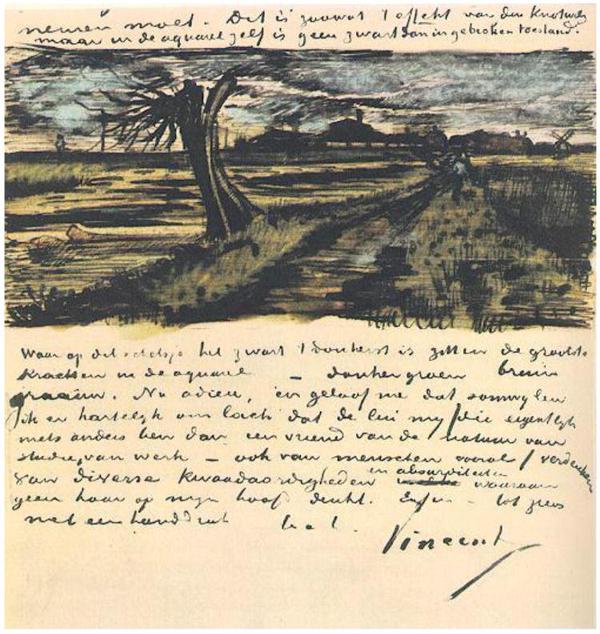 nemen moet. Dit is zoowat 't effekt van den Knotwilg
maar in de aquarel zelf is geen zwart dan in gebroken toestand.
Waar op dit schetsje het zwart 't donkerst is zitten de grootste
krachten in de aquarel – donkergroen bruin
graauw. Nu adieu, en geloof me dat somwijlen
ik er hartelijk om lach dat de lui my /die eigentlyk
niets anders ben dan een vriend van de natuur van
studie, van werk – ook van menschen vooral/ verdenken
van diverse kwaadaardigheden en absurpiteiten waarvan
geen haar op mijn hoofd denkt. Enfin – tot ziens
met een handdruk t. à t.
Vincent